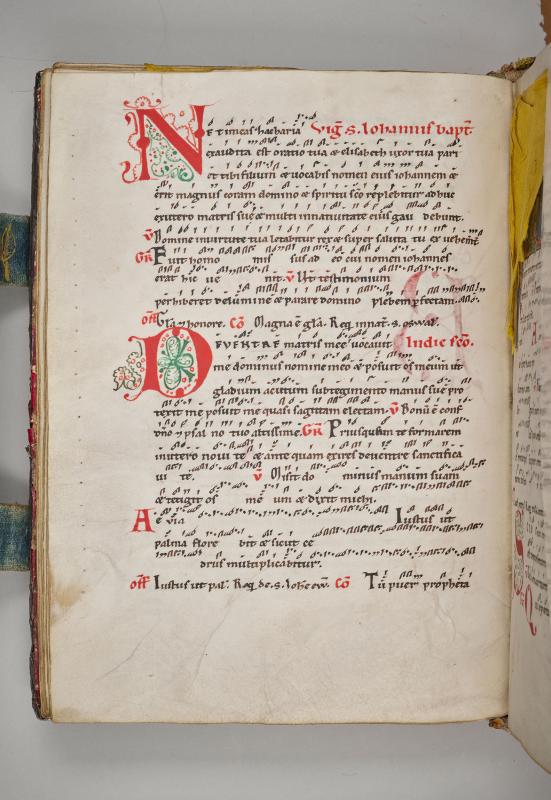 NE timeas zacharia Vig̃ S. Iohannis bapt̃.
exaudita est oratio tua & elisabeth uxor tua pari
et tibi filium & uocabis nomen eius iohannem &
erit magnus coram domino & spiritu sc̄o replebitur adhuc
ex utero matris suę & multi in natiuitate eius gau debunt.
V̄ Domine in uirtute tua letabitur rex & super saluta tu ex
GR̄ Fuit homo mis sus a d eo cui nomen iohannes
erat hic ue nit. V̄ Ut testimonium
perhiberet de lumine & parare domino plebem perfectam.
Off̄ Gl̄a & honore. Cō Magna ē gl̄a. Req̄ in nat̄. s. oswal.
DE VENTRE matris meę uocauit In die sc̄o.
me dominus nomine meo & posuit os meum ut
gladium acutum sub tegimento manus suę pro
texit me posuit me quasi sagittam electam. V̄ Bonū ē conf̄
psal no tuo altissime. GR̄ Priusquam te formarem
in utero noui te & ante quam exires de uentre sanctifica
ui te. V̄ Misit do minus manum suam
& tetigit os me um & dixit michi.
A e uia Iustus ut
palma flore bit & sicut ce
drus multiplicabitur.
Off̄ Iustus ut pal. Req̄ de. s. Ioh̄e ew̄. Cō Tū puer propheta